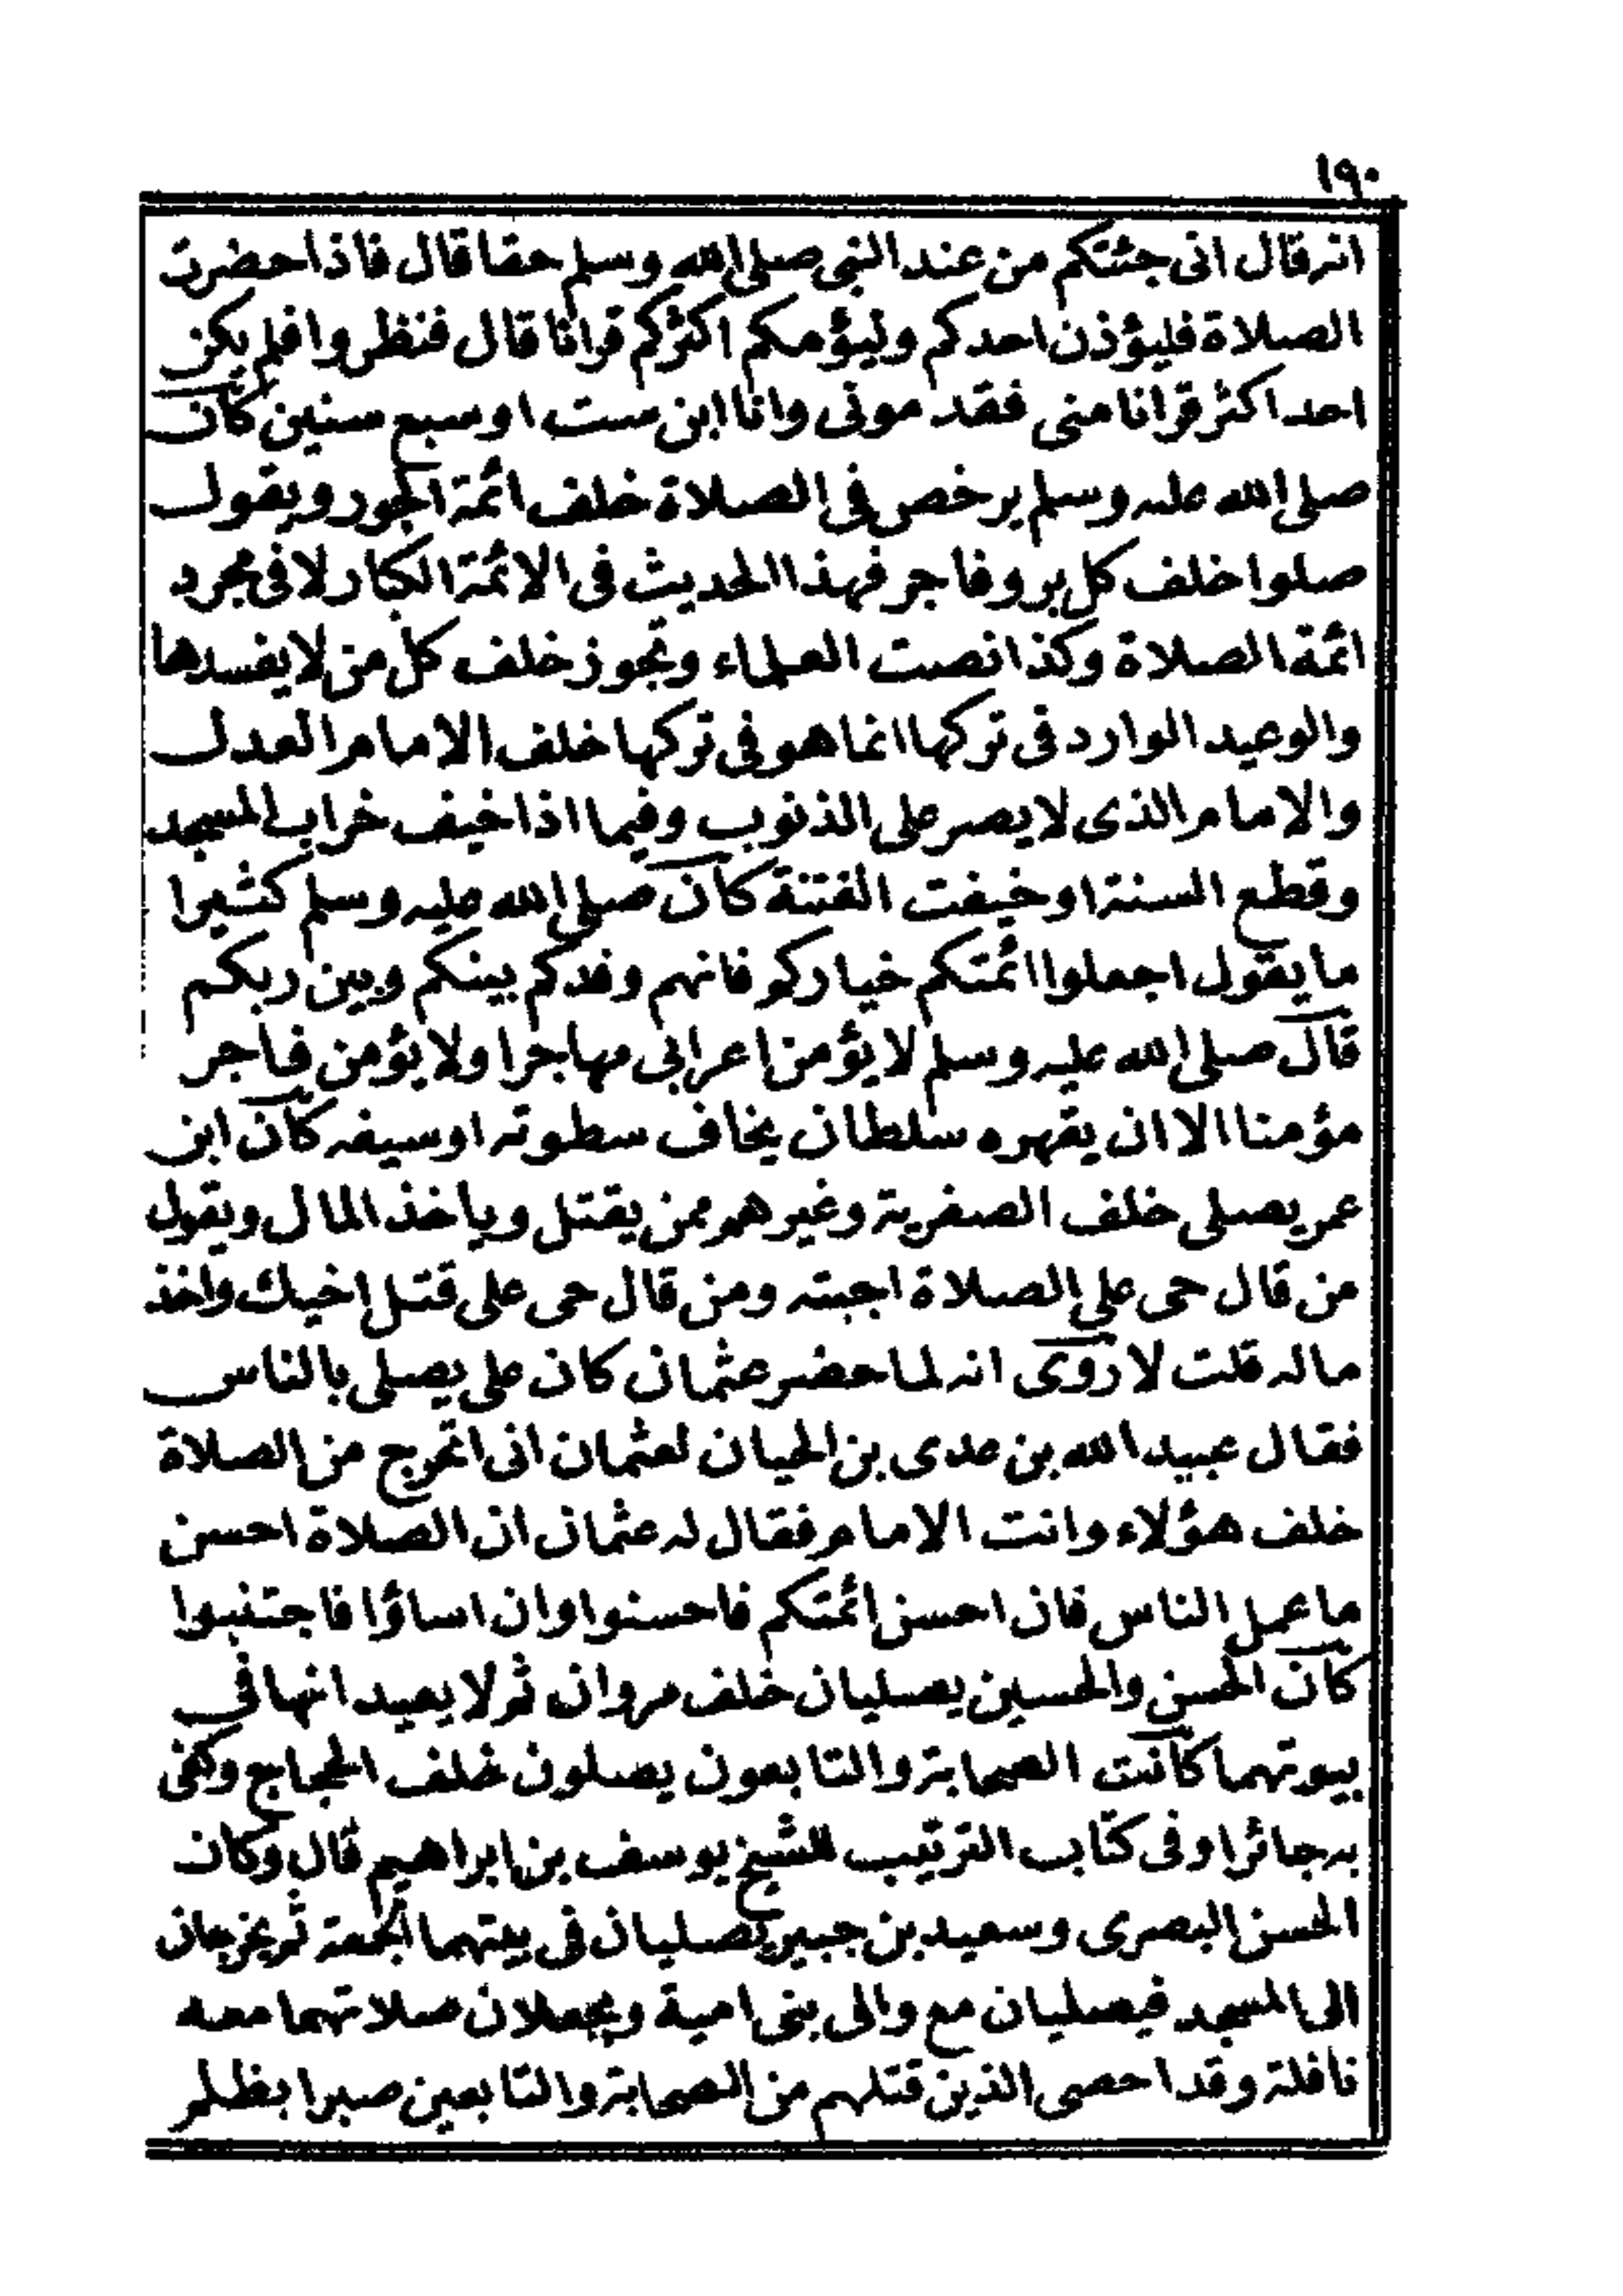 ١٩٠
انه قال انى جئتكم من عند النبى صلى الله وسلم حقا قال فاذا حضرت
الصلاة فليؤذن احدكم وليؤمكم اكثركم قرانا قال فنظروا فلم يكن
احد اكثر قرانا منى فقد مونى وانا ابن ست او سبع سنين كان
صلى الله عليه وسلم يرخص فى الصلاة خلف ائمة الجور ويقول
صلوا خلف كل بر وفاجر فهذا الحديث فى الائمة الكبار لا فى مجرد
ائمة الصلاة وكذا نصت العلماء وتجوز خلف كل من لا يفسدها
والوعيد الوارد فى تركها انما هو فى تركها خلف الامام العدل
والامام الذى لا يصر على الذنوب وفيما اذا خيف خراب المسجد
وقطع السنة او خيفت الفتنة كان صلى الله عليه وسلم كثيرا
ما يقول اجعلوا ائمتكم خياركم فانهم وفدكم بينكم وبين ربكم
قال صلى الله عليه وسلم لا يؤمن اعرابى مهاجرا ولا يؤمن فاجر
مؤمنا الا ان يقهره سلطان يخاف سطوته او سيفه كان ابن
عمر يصلى خلف الصفرية وغيرهم ممن يقتل وياخذ المال ويقول
من قال حى على الصلاة اجبته ومن قال حى على قتل اخيك واخذ
ماله قلت لا روى انه لما حضر عثمان كان على يصلى بالناس
فقال عبيد الله بن عدى بن الحيان لعثمان انى اتحرج من الصلاة
خلف هؤلاء وانت الامام فقال له عثمان ان الصلاة احسن
ما عمل الناس فان احسن ائمتكم فاحسنوا وان اساؤا فاجتنبوا
كان الحسن والحسين يصليان خلف مروان ثم لا يعيد انها فى
بيوتهما كانت الصحابة والتابعون يصلون خلف الحجاج وكفى
به جائرا وفى كتاب الترتيب للشيخ يوسف بن ابراهيم قال وكان
الحسن البصرى وسعيد بن جبير يصليان فى بيتهما الجمعة ثم يخرجان
الى المسجد فيصليان مع والى بنى امية ويجعلان صلاتهما معه
نافلة وقد احصى الذين قتلهم من الصحابة والتابعين صبرا بظلم